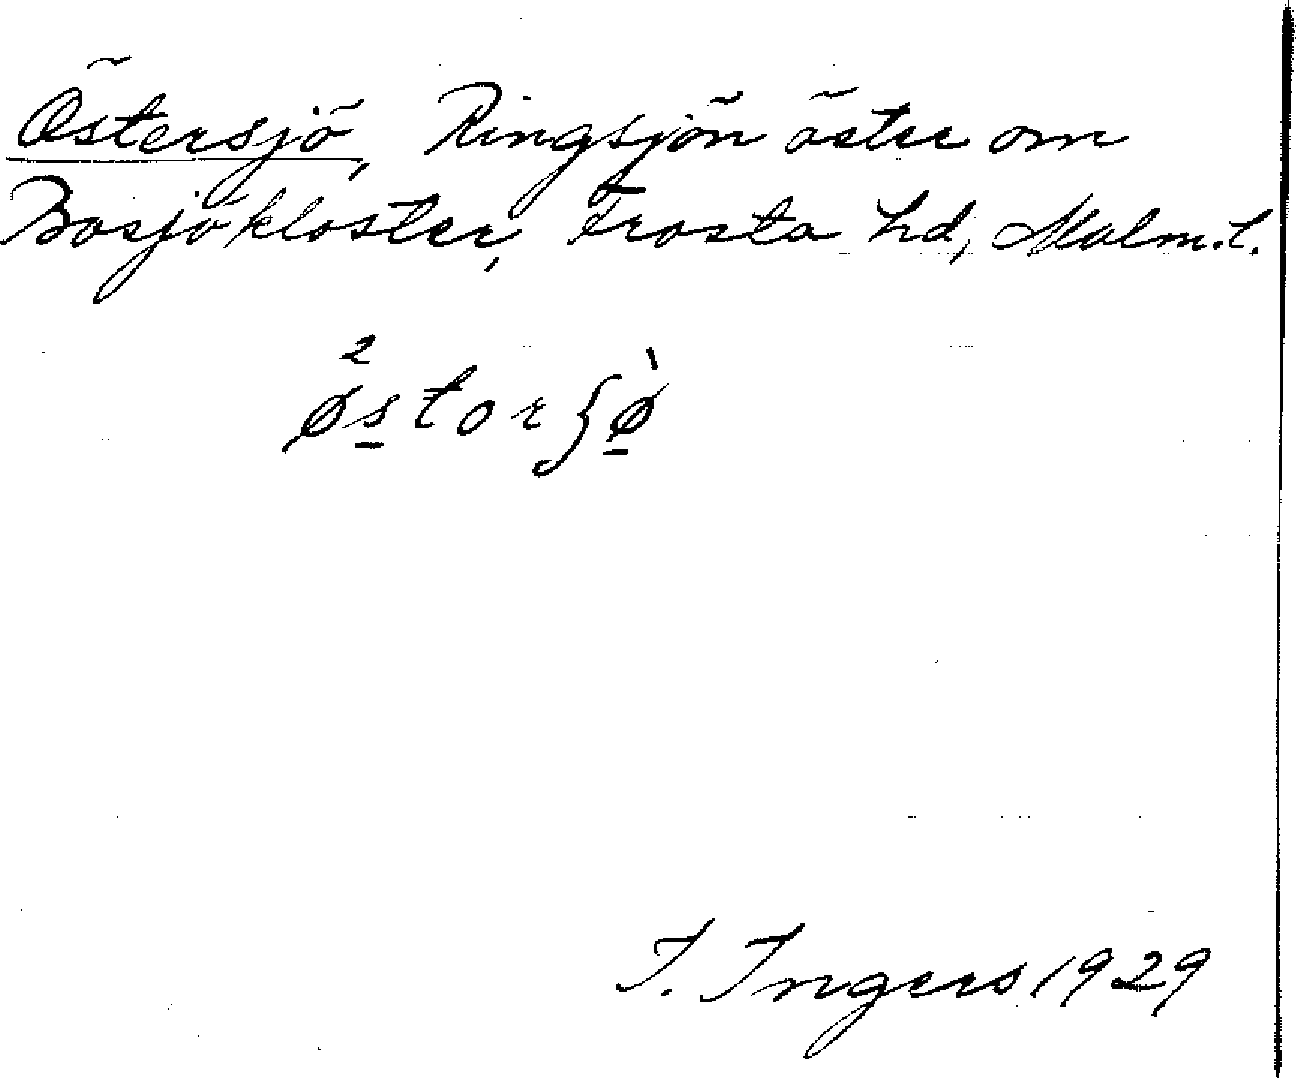 Östersjö, Ringsjön öster om
Bosjökloster, Frosta hd, Malm.l.
I. Ingers 1929